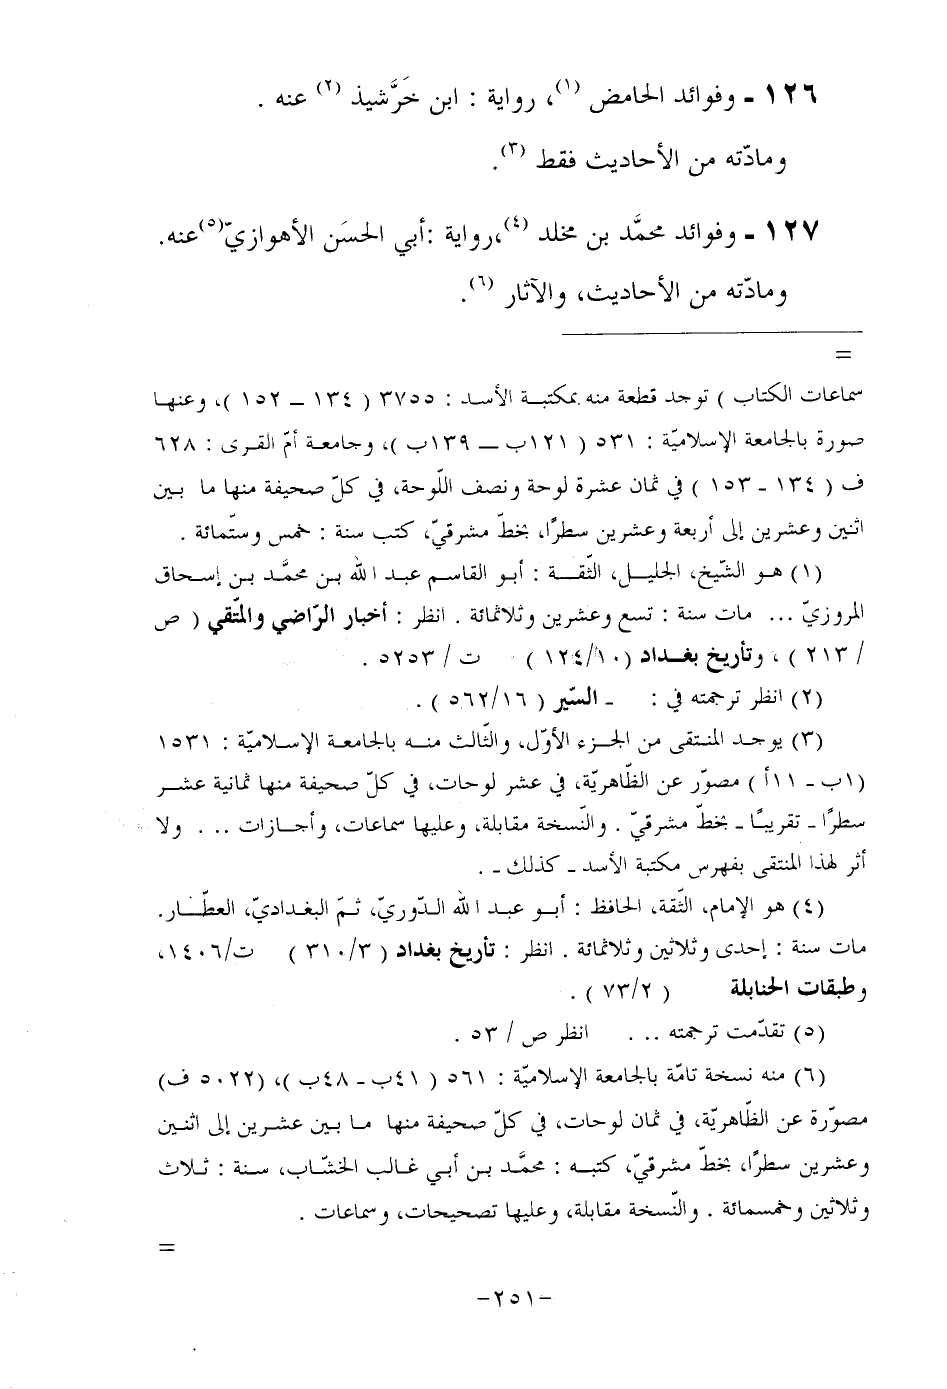 ١٢٦ - وفوائد الحامض (١)، رواية : ابن خَرَّشيذ (٢) عنه .
ومادّته من الأحاديث فقط (٣).
١٢٧ - وفوائد محمَّد بن مخلد (٤)،رواية :أبي الحسَن الأهوازيّ(٥)عنه.
ومادّته من الأحاديث، والآثار (٦).
=
سماعات الكتاب ) توجد قطعة منه بمكتبة الأسد : ٣٧٥٥ ( ١٣٤ – ١٥٢ )، وعنها
صورة بالجامعة الإسلاميّة : ٥٣١ ( ١٢١ب – ١٣٩ب )، وجامعة أمّ القرى : ٦٢٨
ف ( ١٣٤ - ١٥٣ ) في ثمان عشرة لوحة ونصف اللّوحة، في كلّ صحيفة منها ما بين
اثنين وعشرين إلى أربعة وعشرين سطرًا، بخطّ مشرقيّ، كتب سنة : خمس وستّمائة .
(١) هو الشّيخ، الجليل، الثّقة : أبو القاسم عبد الله بن محمَّد بن إسحاق
المروزيّ ... مات سنة : تسع وعشرين وثلاثمائة . انظر : أخبار الرّاضي والمتّقي ( ص
/ ٢١٣ ) ، وتأريخ بغداد (١٢٤/١٠) ت / ٥٢٥٣ .
(٢) انظر ترجمته في : - السّير ( ٥٦٢/١٦ ) .
(٣) يوجد المنتقى من الجزء الأوّل، والثّالث منه بالجامعة الإسلاميّة : ١٥٣١
(١ب - ١١أ ) مصوّر عن الظّاهريّة، في عشر لوحات، في كلّ صحيفة منها ثمانية عشر
سطرًا - تقريبًا - بخطّ مشرقيّ . والنّسخة مقابلة، وعليها سماعات، وأجازات ... ولا
أثر لهذا المنتقى بفهرس مكتبة الأسد - كذلك - .
(٤) هو الإمام، الثّقة، الحافظ : أبو عبد الله الدّوريّ، ثمّ البغداديّ، العطّار.
مات سنة : إحدى وثلاثين وثلاثمائة . انظر : تأريخ بغداد ( ٣١٠/٣ ) ت/١٤٠٦،
وطبقات الحنابلة ( ٧٣/٢ ) .
(٥) تقدّمت ترجمته ... انظر ص / ٥٣ .
(٦) منه نسخة تامّة بالجامعة الإسلاميّة : ٥٦١ ( ٤١ب - ٤٨ب )، (٥٠٢٢ ف)
مصوّرة عن الظّاهريّة، في ثمان لوحات، في كلّ صحيفة منها ما بين عشرين إلى اثنين
وعشرين سطرًا، بخطّ مشرقيّ، كتبه : محمَّد بن أبي غالب الخشّاب، سنة : ثلاث
وثلاثين وخمسمائة . والنّسخة مقابلة، وعليها تصحيحات، وسماعات .
=
-٢٥١-